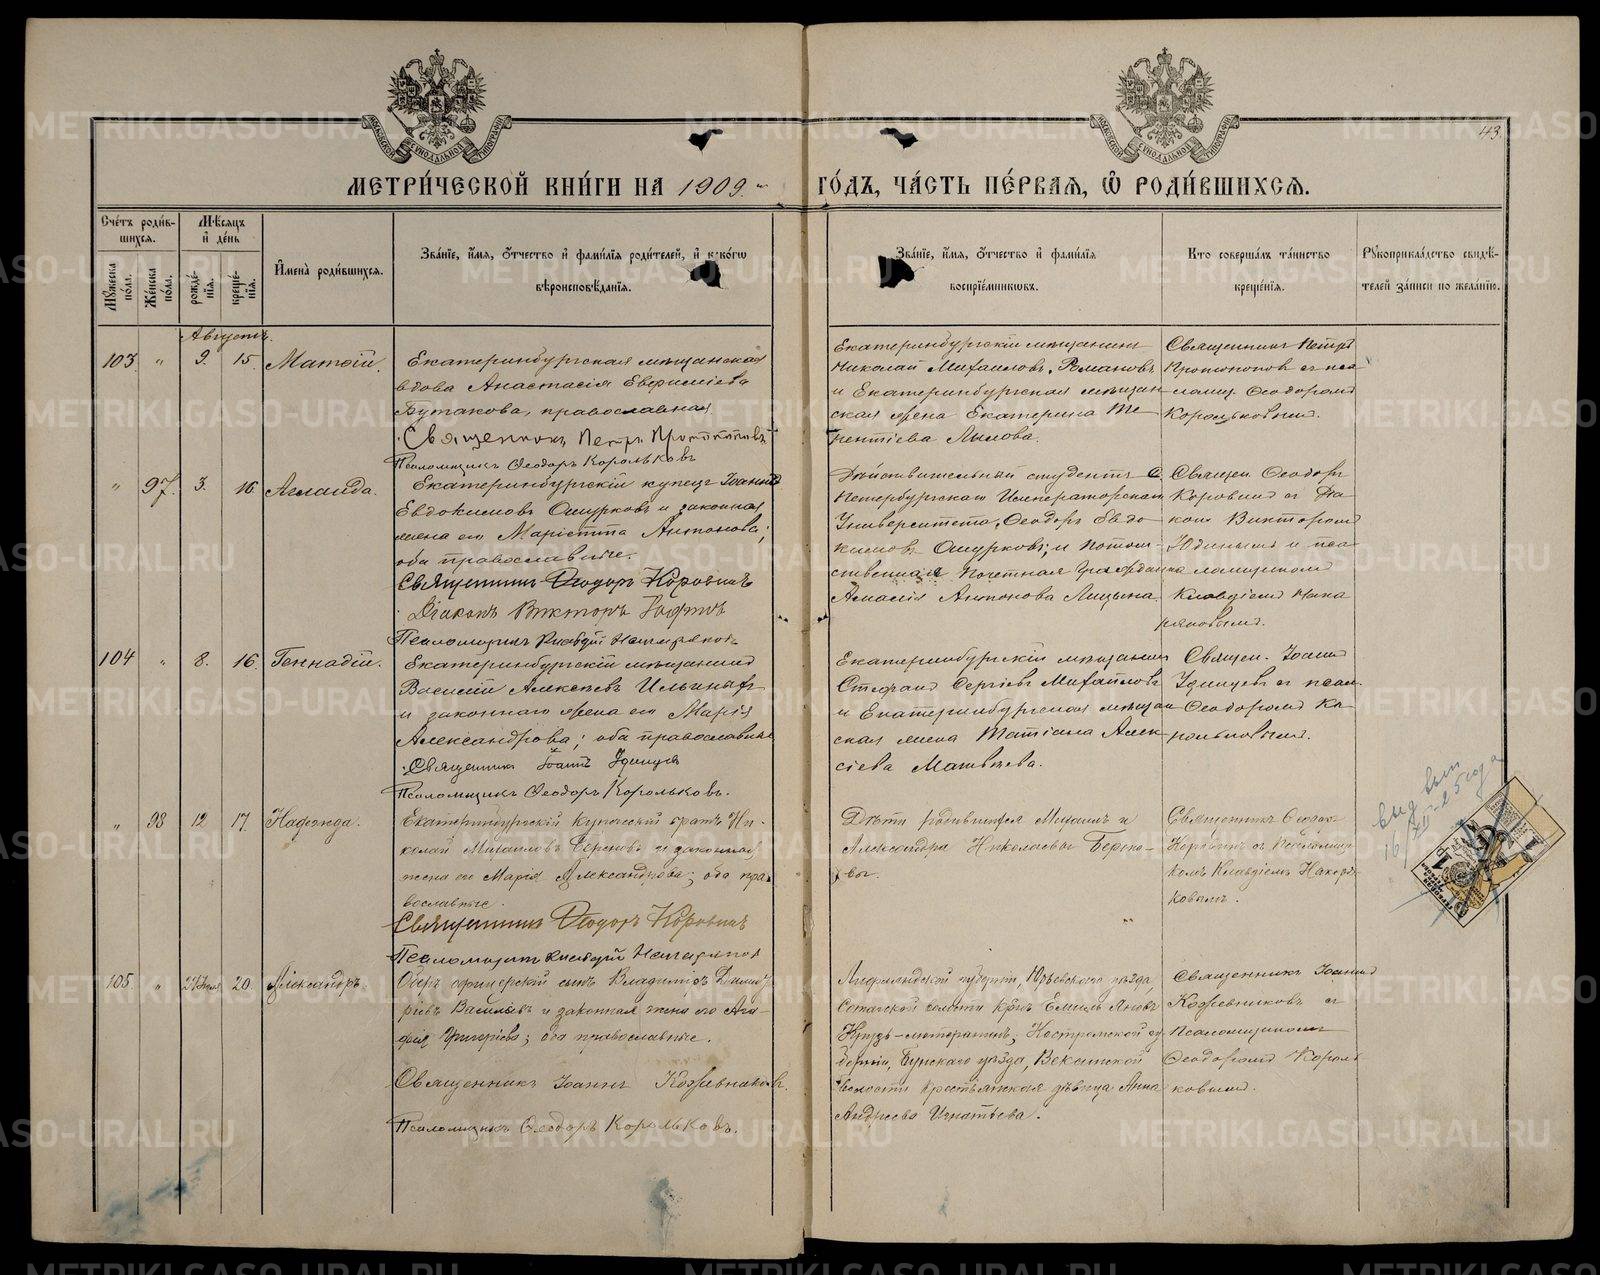 МЕТРИ́ЧЕСКОЙ КНИ́ГИ НА 1909 ГО́ДЪ, ЧА́СТЬ ПЕ́РВАЯ, Ѡ РОДИ́ВШИХСЯ.
43
МОСКОВСКОЙ СѴНОДАЛЬНОЙ ТИПОГРАФІИ
МОСКОВСКОЙ СѴНОДАЛЬНОЙ ТИПОГРАФІИ
Сче́тъ роди́вшихся.
Мꙋ́жеска по́ла.
Же́нска по́ла.
Мѣ́сяцъ и҆ де́нь
рожде́нїя.
креще́нїя.
И҆мена̀ роди́вшихся.
Зва́нїе, и҆́мя, ѻ҆́тчество и҆ фами́лїя роди́телей, и҆ како́гѡ
вѣроисповѣ́данїя.
Зва́нїе, и҆́мя, ѻ҆́тчество и҆ фами́лїя
воспрїе́мникѡвъ.
Кто̀ соверша́лъ та́инство
креще́нїя.
Рꙋкоприкла́дство свидѣ́-
телей за́писи по жела́нїю.
Августъ.
103 " 9. 15. Матѳій.
Екатеринбургская мѣщанская
вдова Анастасія Евфиміева
Бутакова, православная.
Священникъ Петръ Протопоповъ
Псаломщикъ Ѳеодоръ Корольковъ
Екатеринбургскій мѣщанинъ
Николай Михаиловъ Романовъ
и Екатеринбургская мѣщан
ская жена Екатерина Те
рентіева Лылова.
Священникъ Петръ
Протопоповъ съ пса
ломщ. Ѳеодоромъ
Корольковымъ.
" 97. 3. 16. Аглаида.
Екатеринбургскій купецъ Іоаннъ
Евдокимовъ Ошурковъ и законная
жена его Маріетта Антонова;
оба православные.
Священникъ Ѳеодоръ Коровинъ
Діаконъ Викторъ Юдинъ
Псаломщикъ Клавдій
Дѣйствительный студентъ С.
Петербургскаго Императорскаго
Университета, Ѳеодоръ Евдо
кимовъ Ошурковъ; и потом-
ственная почетная гражданка
Амалія Антонова
Священ. Ѳеодоръ
Коровинъ съ діа
кон. Викторомъ
Юдинымъ и пса
ломщикомъ
Клавдіемъ
104 " 8. 16. Геннадій.
Екатеринбургскій мѣщанинъ
Василій Алексѣевъ Ильиныхъ
и законная жена его Марія
Александрова; оба православные
Священникъ Іоаннъ Удинцевъ
Псаломщикъ Ѳеодоръ Корольковъ.
Екатеринбургскій мѣщанинъ
Стефанъ Сергіевъ Михайловъ
и Екатеринбургская мѣщан
ская жена Татіана Алек
сіева Матвѣева.
Священ. Іоаннъ
Удинцевъ съ псал.
Ѳеодоромъ Ко
рольковымъ.
" 98 12 17. Надежда.
Екатеринбургскій купеческій братъ Ни-
колай Михаиловъ и законная
жена его Марія Александрова; оба пра
вославные.
Священникъ Ѳеодоръ Коровинъ
Псаломщикъ Клавдій
Дѣти родившейся Михаилъ и
Александра Николаевы
Священникъ Ѳеодоръ
Коровинъ съ Псаломщи
комъ Клавдіемъ
105. " 20. Александръ.
Оберъ офицерскій сынъ Владиміръ Димит
ріевъ Васильевъ и законная жена его Ага-
фія Григорьева; оба православные.
Священникъ Іоаннъ Кожевниковъ.
Псаломщикъ Ѳеодоръ Корольковъ.
Лифляндской губерніи, Юрьевскаго уѣзда,
волости кр-нъ Емилъ Яновъ
Костромской гу
берніи, уѣзда,
волости крестьянская дѣвица Анна
Андреева Игнатьева.
Священникъ Іоаннъ
Кожевниковъ съ
Псаломщикомъ
Ѳеодоромъ Король
ковымъ.
METRIKI.GASO-URAL.RU